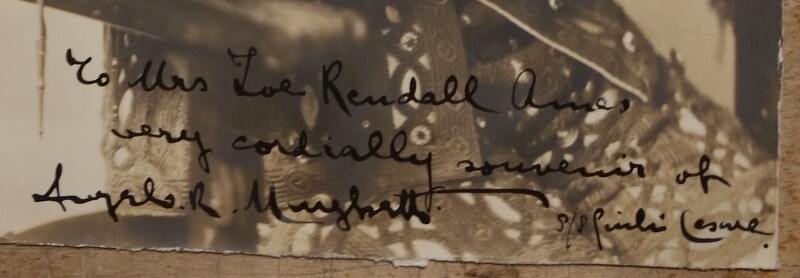 To Mrs Zoe Rendall Ames
very cordially souvenir of
Angelo. R. Minghetti.
S/S Giulio Cesare.